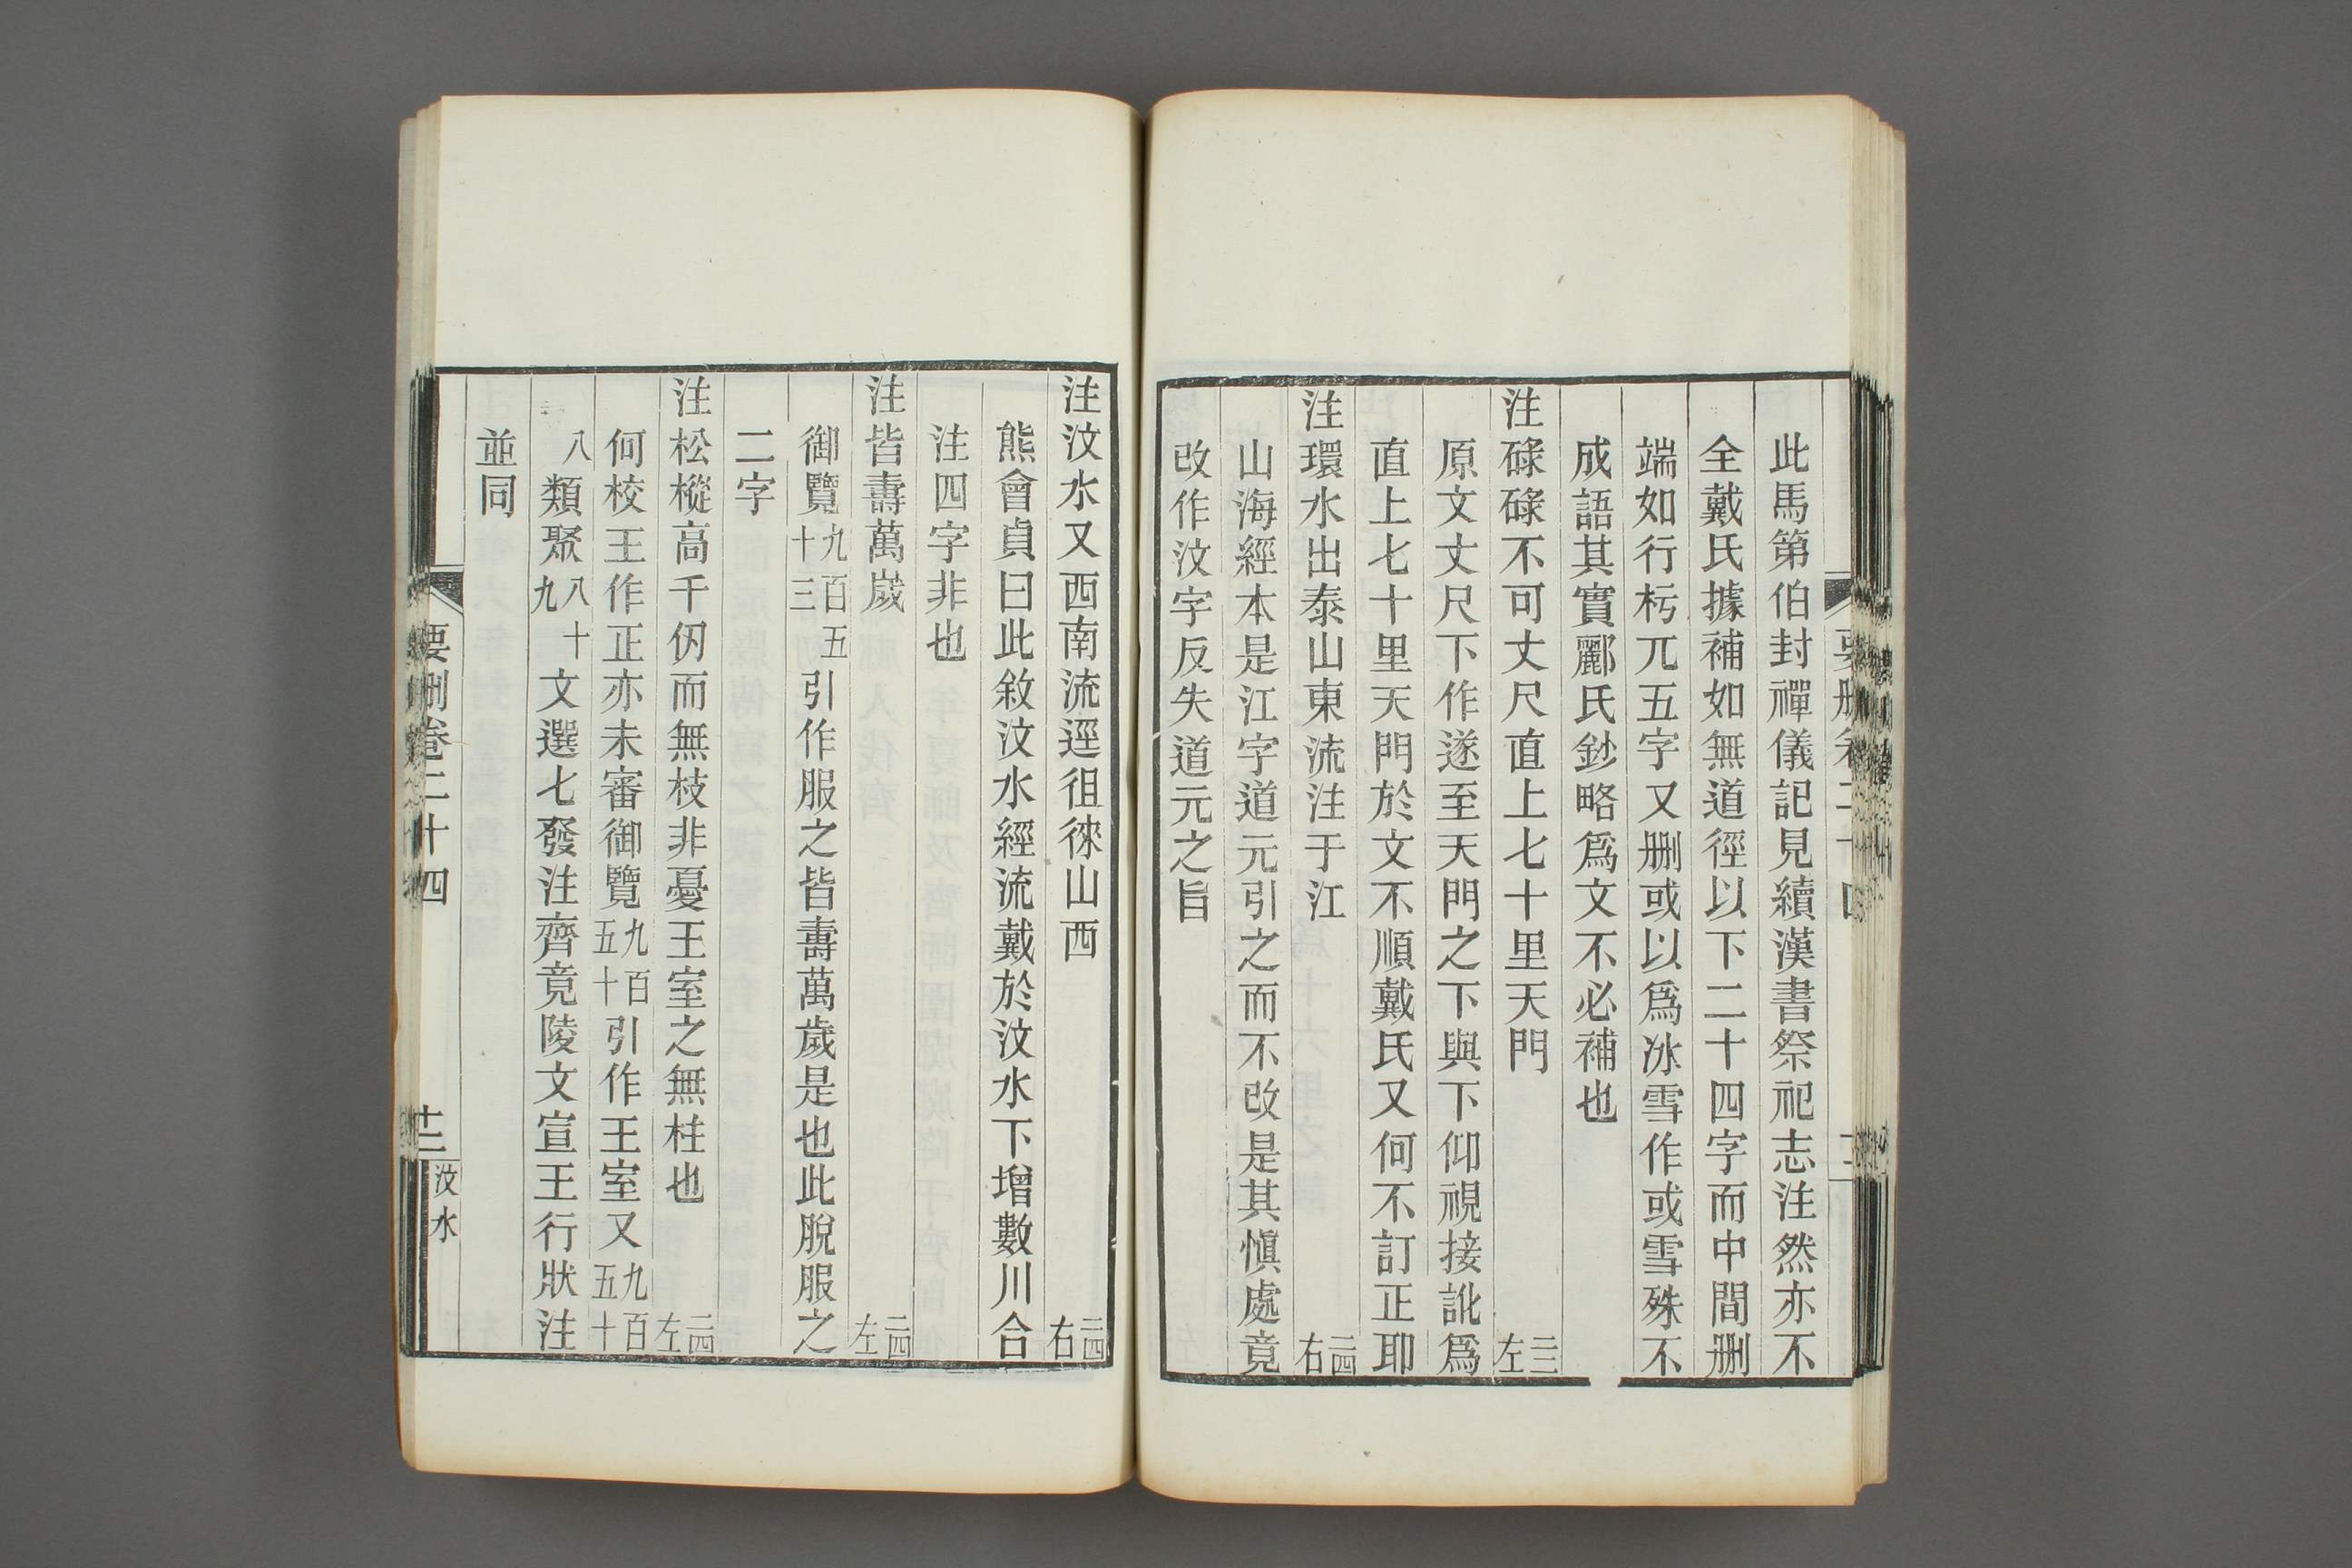 此馬第伯封禪儀記見續漢書祭祀志注然亦不
全戴氏據補如無道徑以下二十四字而中間刪
端如行杇兀五字又刪或以爲冰雪作或雪殊不
成語其實酈氏鈔略爲文不必補也
注碌碌不可丈尺直上七十里天門 二三左
原文丈尺下作遂至天門之下與下仰視接訛爲
直上七十里天門於文不順戴氏又何不訂正耶
注環水出泰山東流注于江 二四右
山海經本是江字道元引之而不改是其愼處竟
改作汶字反失道元之旨
注汶水又西南流逕徂徠山西 二四右
熊會貞曰此敘汶水經流戴於汶水下增數川合
注四字非也
注皆壽萬歲 二四左
御覽九百五十三引作服之皆壽萬歲是也此脫服之
二字
注松樅高千仞而無枝非憂王室之無柱也 二四左
何校王作正亦未審御覽九百五十引作王室又九百五十
八類聚八十九文選七發注齊竟陵文宣王行狀注
並同
要刪卷二十四
十二
汶水